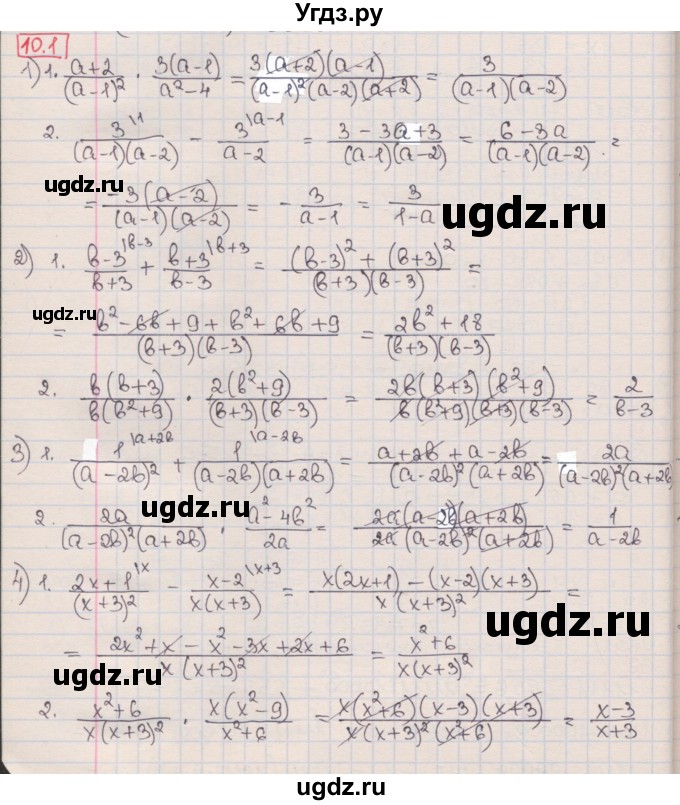 Угдз.ру
10.1
1) 1. (a+2)/(a-1)² · 3(a-1)/(a²-4) = 3(a+2)(a-1)/((a-1)²(a-2)(a+2)) = 3/((a-1)(a-2))
2. 3\1/((a-1)(a-2)) - 3\a-1/(a-2) = (3-3a+3)/((a-1)(a-2)) = (6-3a)/((a-1)(a-2)) =
ugdz.ru
ugdz.ru
= -3(a-2)/((a-1)(a-2)) = - 3/(a-1) = 3/(1-a)
ugdz.ru
2) 1. (b-3)|b-3/(b+3) + (b+3)|b+3/(b-3) = ((b-3)² + (b+3)²)/((b+3)(b-3)) =
ugdz.ru
= (b²-6b+9+b²+6b+9)/((b+3)(b-3)) = (2b²+18)/((b+3)(b-3))
2. b(b+3)/(b(b²+9)) · 2(b²+9)/((b+3)(b-3)) = 2b(b+3)(b²+9)/(b(b²+9)(b+3)(b-3)) = 2/(b-3)
3) 1. 1|a+2b/(a-2b)² + 1|a-2b/((a-2b)(a+2b)) = (a+2b+a-2b)/((a-2b)²(a+2b)) = 2a/((a-2b)²(a+2b))
ugdz.ru
ugdz.ru
2. 2a/((a-2b)²(a+2b)) · (a²-4b²)/2a = 2a(a-2b)(a+2b)/(2a(a-2b)²(a+2b)) = 1/(a-2b)
4) 1. (2x+1)|x/(x+3)² - (x-2)|x+3/(x(x+3)) = (x(2x+1)-(x-2)(x+3))/(x(x+3)²) =
ugdz.ru
= (2x²+x-x²-3x+2x+6)/(x(x+3)²) = (x²+6)/(x(x+3)²)
ugdz.ru
2. (x²+6)/(x(x+3)²) · x(x²-9)/(x²+6) = x(x²+6)(x-3)(x+3)/(x(x+3)²(x²+6)) = (x-3)/(x+3)
ugdz.ru
ugdz.ru